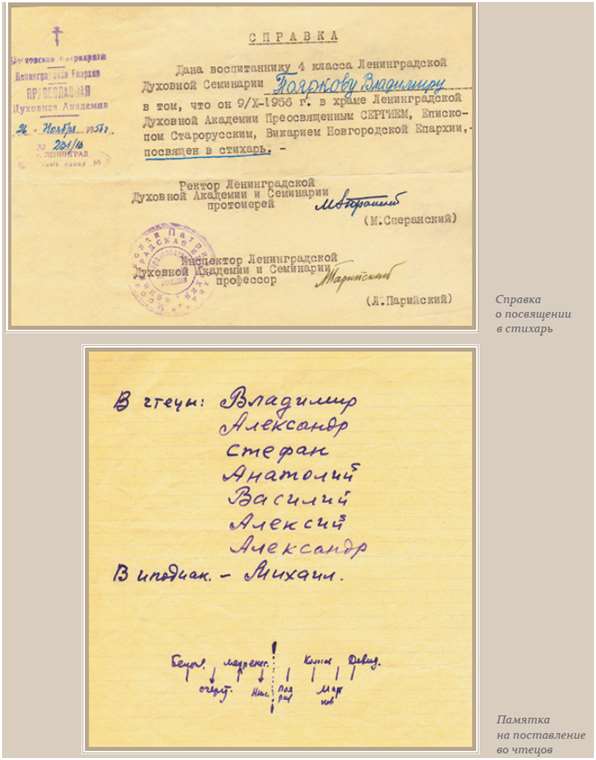 СПРАВКА
Московская Патриархия
Ленинградская Епархия
ПРАВОСЛАВНАЯ
Духовная Академия
26 - Ноября 195
№
г. ЛЕНИНГРАД
Дана воспитаннику 4 класса Ленинградской
Духовной Семинарии Пояркову Владимиру
в том, что он 9/X-1956 г. в храме Ленинградской
Духовной Академии Преосвященным СЕРГИЕМ, Еписко-
пом Старорусским, Викарием Новгородской Епархии,-
посвящен в стихарь. -
Ректор Ленинградской
Духовной Академии и Семинарии
протоиерей
(М.Сперанский)
Инспектор Ленинградской
Духовной Академии и Семинарии
профессор
(Л.Парийский)
Справка
о посвящении
в стихарь
В чтецы: Владимир
Александр
Стефан
Анатолий
Василий
Алексий
Александр
В иподиак. - Михаил.
Памятка
на поставление
во чтецов